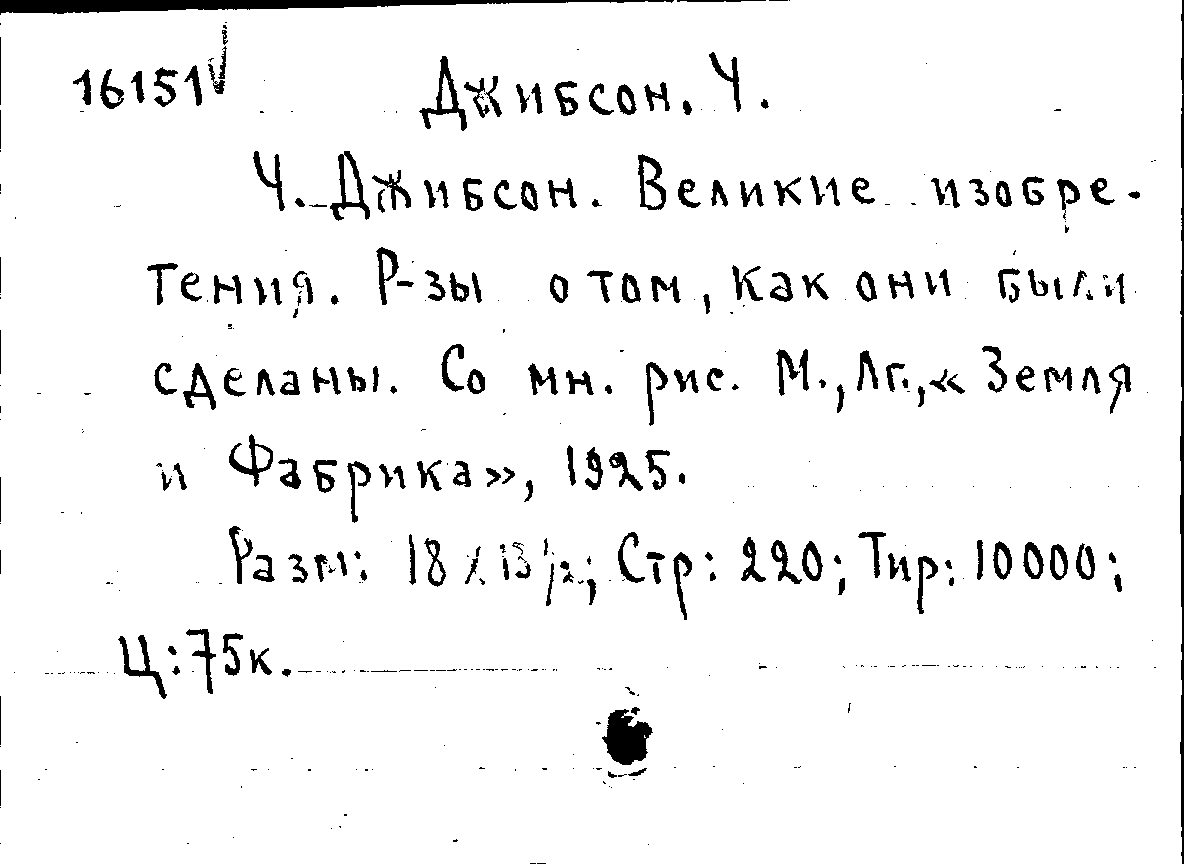 16151 Джибсон. Ч.
Ч. Джибсон. Великие изобре-
тения. Р-зы о том, как они были
сделаны. Со мн. рис. М., Лг., «Земля
и Фабрика», 1925.
Разм: 18 X 13 1/2; Стр: 220; Тир: 10000;
Ц: 75к.